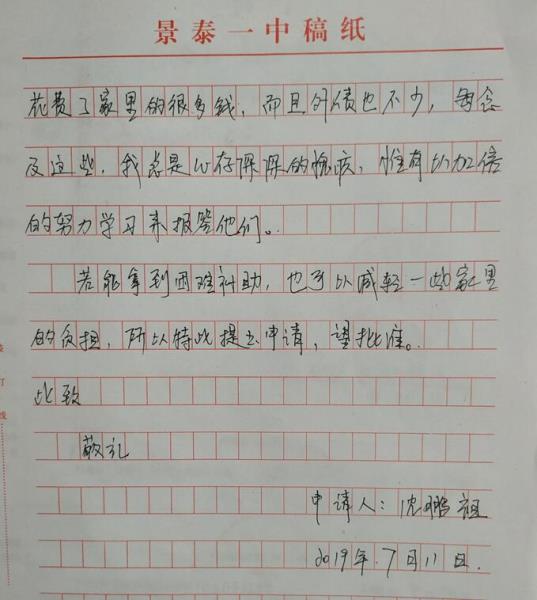 景泰一中稿纸
花费了家里的很多钱，而且外债也不少，每念
及这些，我总是心存深深的愧疚，惟有以加倍
的努力学习来报答他们。
若能拿到困难补助，也可以减轻一些家里
的负担，所以特此提出申请，望批准。
此致
敬礼
申请人：沈鹏祖
2019年7月11日.
订
线